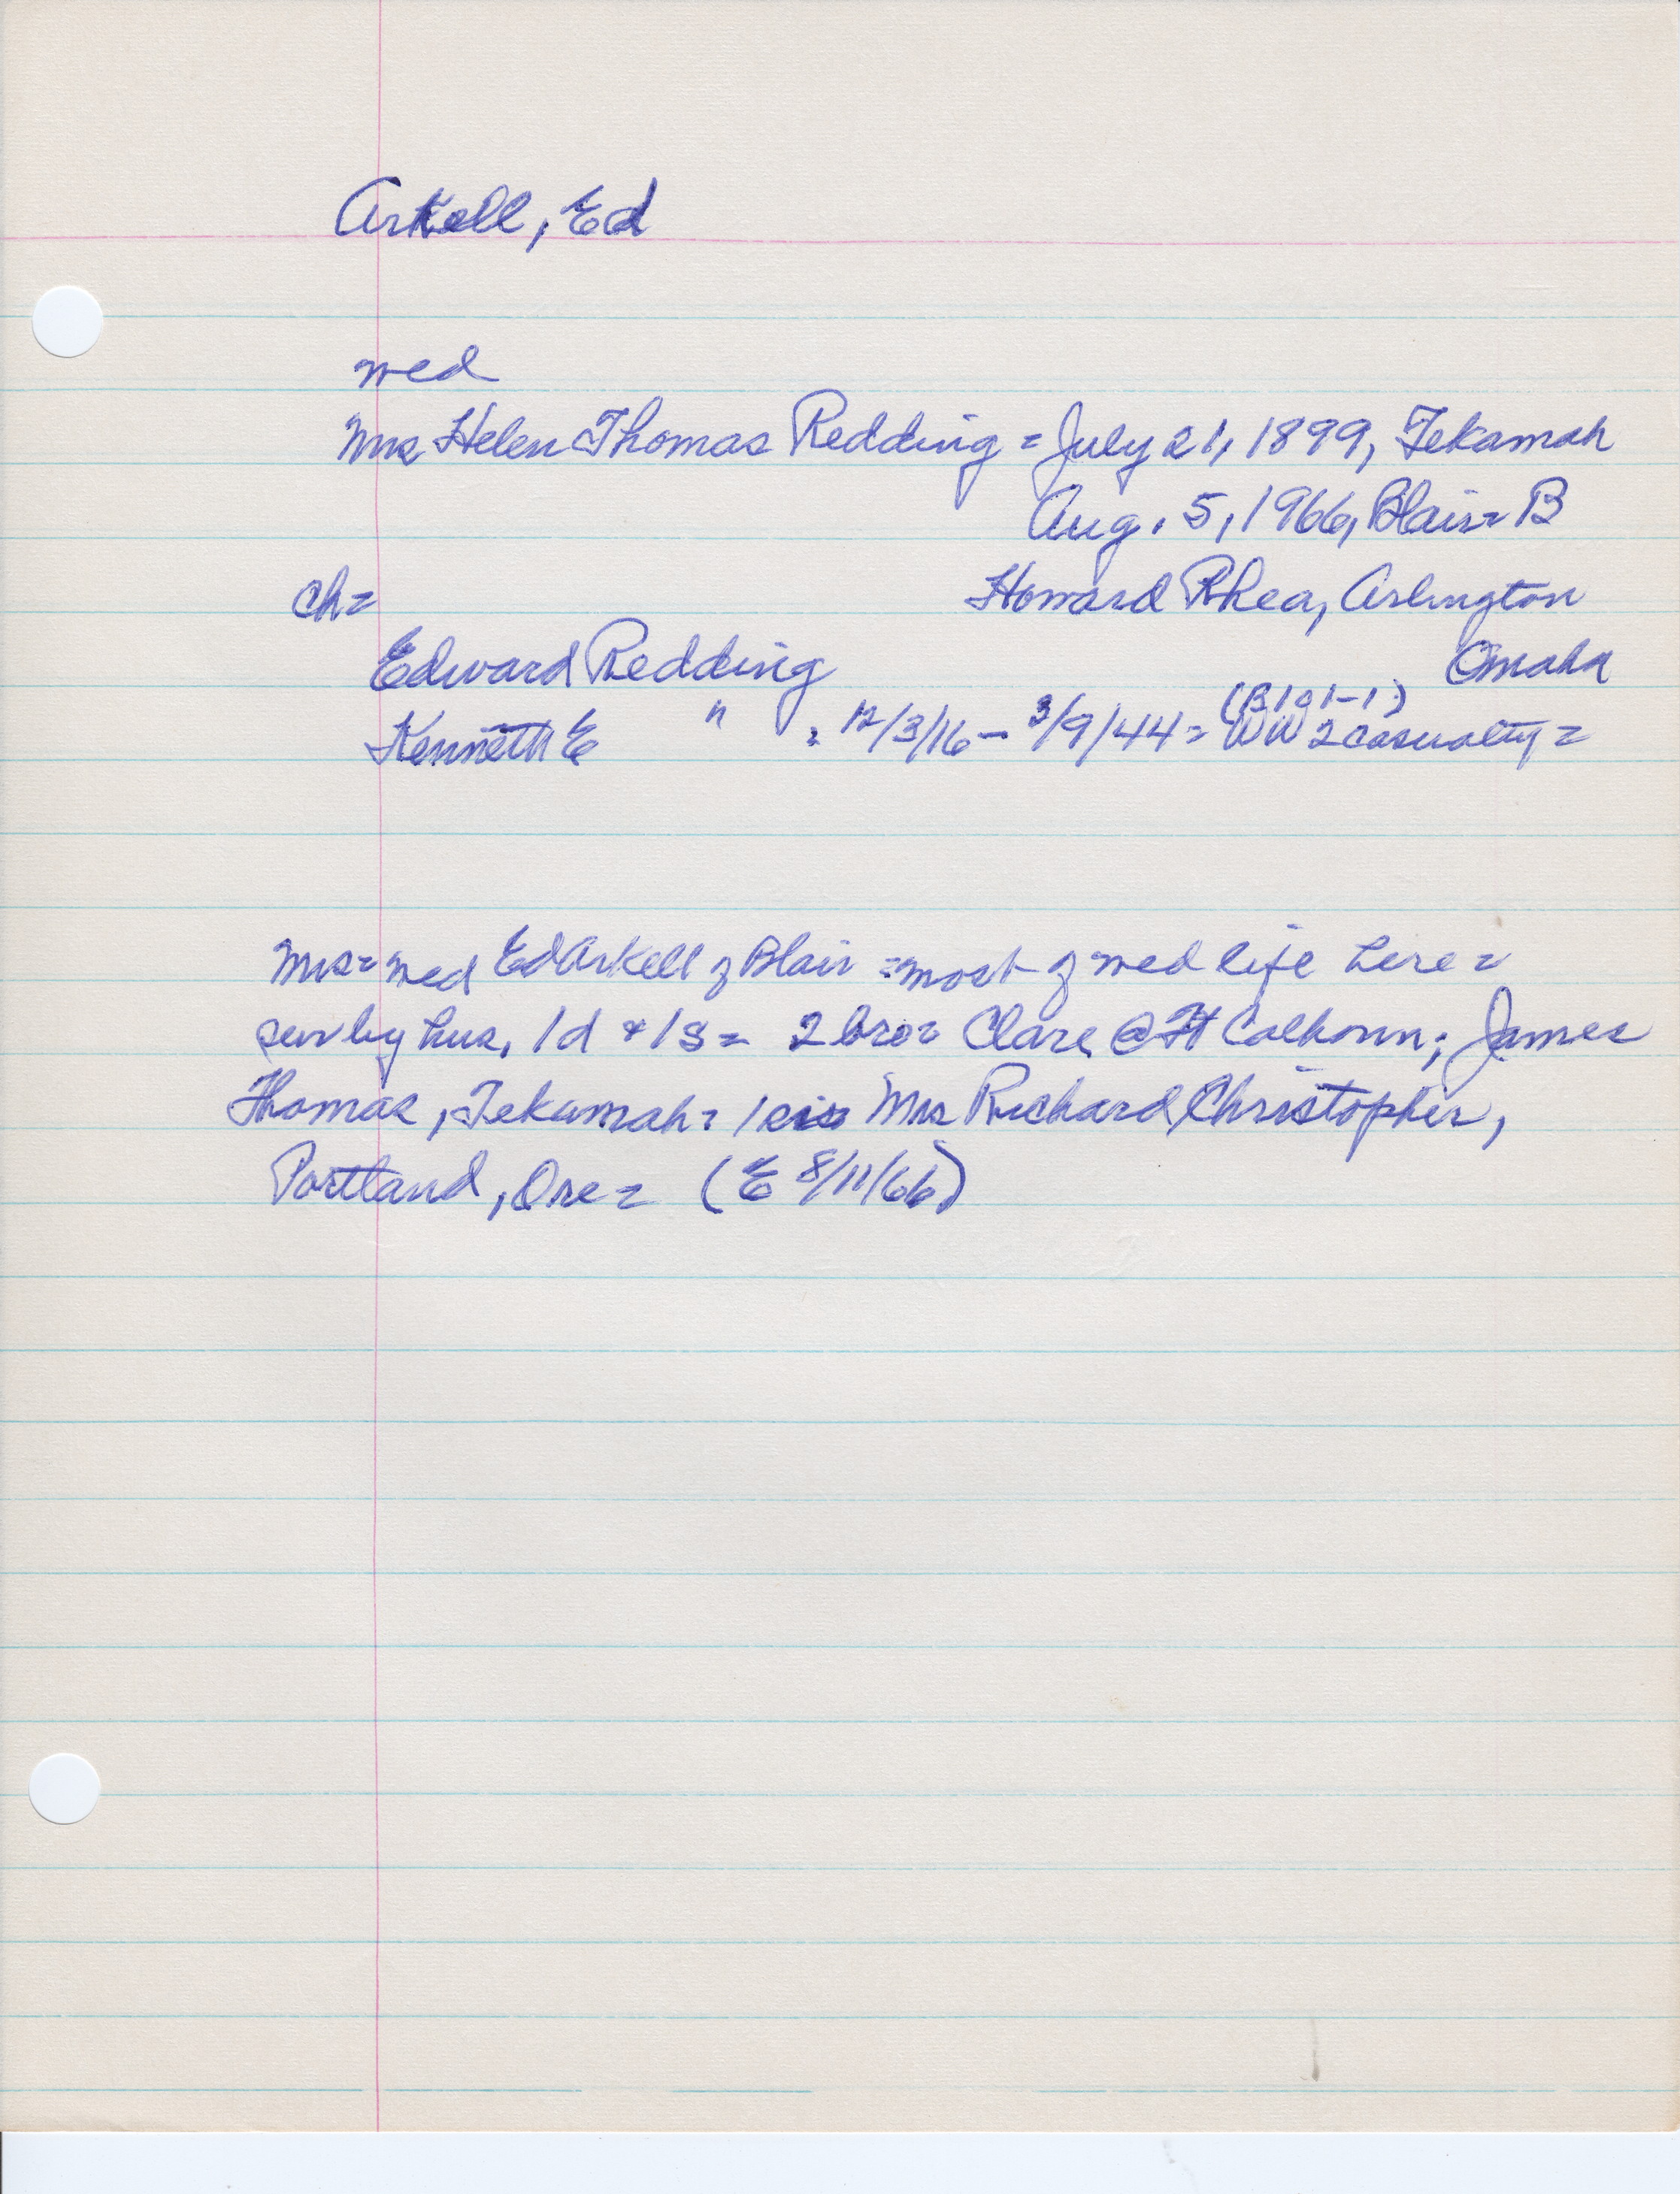 Arkell, Ed
wed
Mrs Helen Thomas Redding = July 21, 1899, Tekamah
Aug. 5, 1966, Blair = B
ch= Howard Rhea, Arlington
Edward Redding Omaha
(B 101-1)
Kenneth E " = 12/3/16 - 3/9/44 = WW 2 casualty =
Mrs = wed Ed Arkell of Blair = most of wed life here =
surv by hus, 1d + 1s = 2 bro = Clare @ Ft Calhoun; James
Thomas, Tekamah = 1 sis Mrs Richard Christopher,
Portland, Ore = (E 8/11/66)